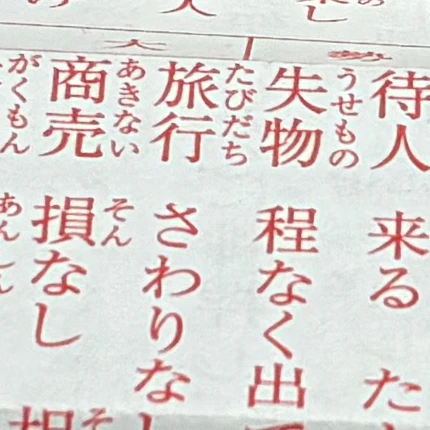 待人 来る た
失物 うせもの 程なく出
旅行 たびだち さわりな
商売 あきない 損なし そん
がくもん